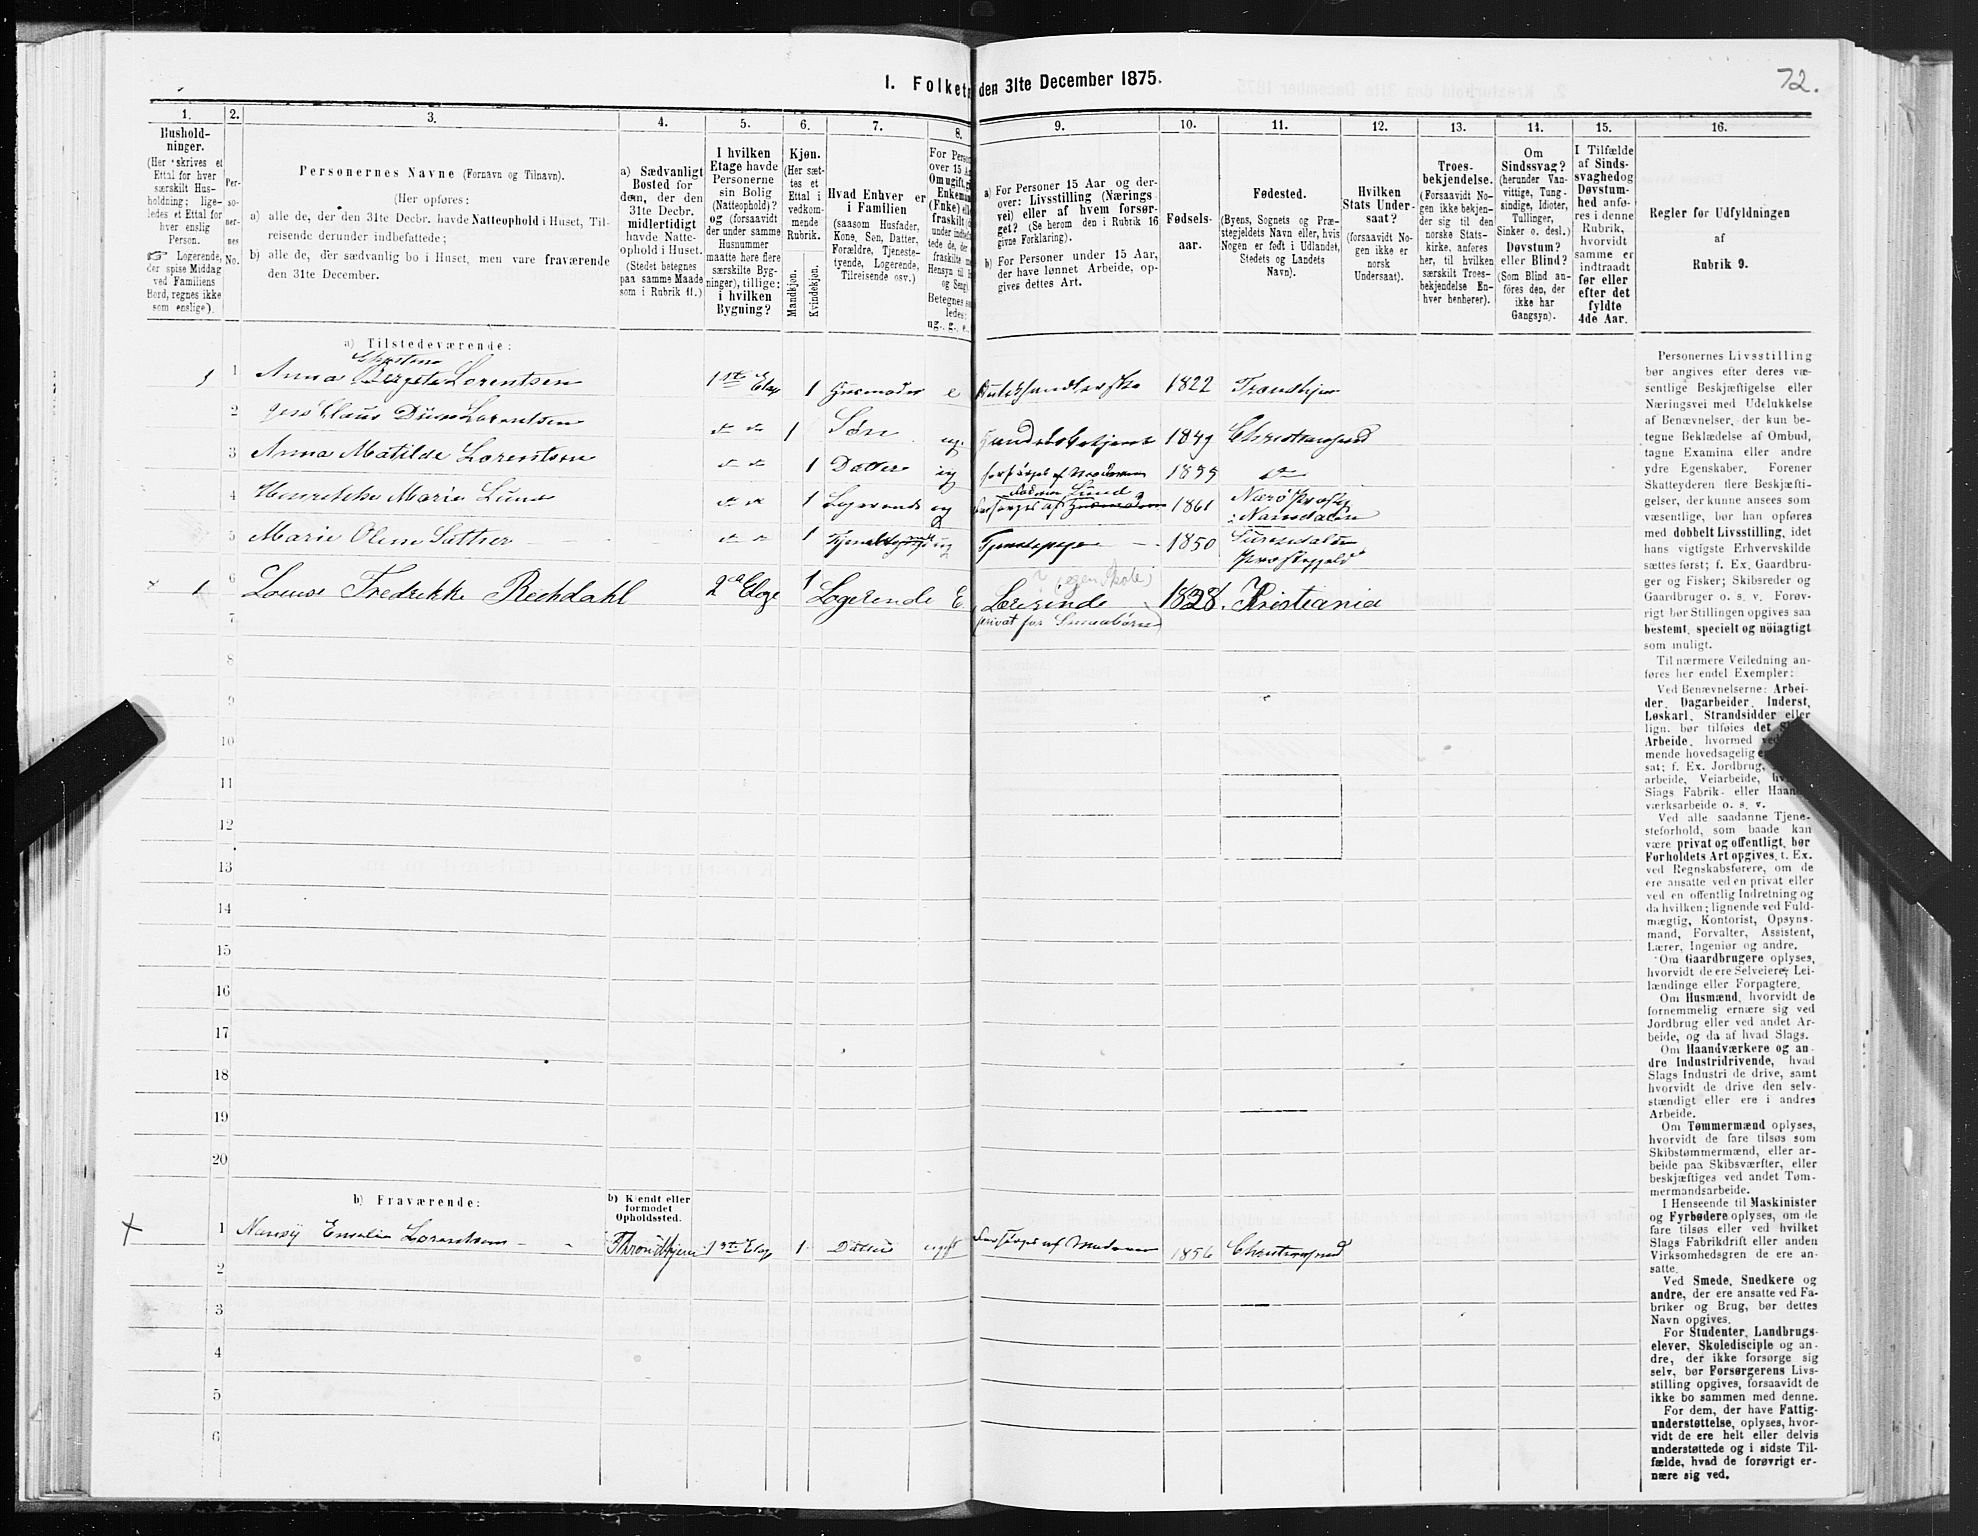 72.
I. Folket den 31te December 1875.
1.
Hushold-
ninger.
(Her skrives et
Ettal for hver
særskilt Hus-
holdning; lige-
ledes et Ettal for
hver enslig
Person.
☞ Logerende,
der spise Middag
ved Familiens
Bord, regnes ikke
som enslige).
2.
Per-
so-
ner-
nes
No.
3.
Personernes Navne (Fornavn og Tilnavn).
(Her opføres:
a) alle de, der den 31te Decbr. havde Natteophold i Huset, Til-
reisende derunder indbefattede;
b) alle de, der sædvanlig bo i Huset, men vare fraværende
den 31te December.
4.
a) Sædvanligt
Bosted for
dem, der den
31te Decbr.
midlertidigt
havde Natte-
ophold i Huset.
(Stedet betegnes
paa samme Maade
som i Rubrik 11.)
5.
I hvilken
Etage havde
Personerne
sin Bolig
(Natteophold)?
og (forsaavidt
der under samme
Husnummer
maatte høre flere
særskilte Byg-
ninger), tillige:
i hvilken
Bygning?
6.
Kjøn.
(Her sæt-
tes et
Ettal i
vedkom-
mende
Rubrik.
Mandkjøn.
Kvindekjøn.
7.
Hvad Enhver er
i Familien
(saasom Husfader,
Kone, Søn, Datter,
Forældre, Tjeneste-
tyende, Logerende,
Tilreisende osv.)
8.
For Perso
over 15 A
Om ugift, g
Enkema
(Enke) el
fraskilt
under indbef
tede de, der
fraskilte m
Hensyn til B
og Seng).
Betegnes s
ledes:
ug., g., e.,
9.
a) For Personer 15 Aar og der-
over: Livsstilling (Nærings
vei) eller af hvem forsør-
get? (Se herom den i Rubrik 16
givne Forklaring).
b) For Personer under 15 Aar,
der have lønnet Arbeide, op-
gives dettes Art.
10.
Fødsels-
aar.
11.
Fødested.
(Byens, Sognets og Præ-
stegjeldets Navn eller, hvis
Nogen er født i Udlandet,
Stedets og Landets
Navn).
12.
Hvilken
Stats Under-
saat?
(forsaavidt No-
gen ikke er
norsk
Undersaat).
13.
Troes-
bekjendelse.
(Forsaavidt No-
gen ikke bekjen-
der sig til den
norske Stats-
kirke, anføres
her, til hvilken
særskilt Troes-
bekjendelse En-
hver henhører).
14.
Om
Sindssvag?
(herunder Van-
vittige, Tung-
sindige, Idioter,
Tullinger,
Sinker o. desl.)
Døvstum?
eller Blind?
(Som Blind an-
føres den, der
ikke har
Gangsyn).
15.
I Tilfælde
af Sinds-
svaghed og
Døvstum-
hed anfø-
res i denne
Rubrik,
hvorvidt
samme er
indtraadt
før eller
efter det
fyldte
4de Aar.
16.
Regler for Udfyldningen
af
Rubrik 9.
a) Tilstedeværende:
1 1 Anna Lorentsen 1ste Etag 1 Husmoder e 1822 Trondhjem
2 Claus Due Lorentsen do do 1 Søn ug. 1849 Christiansund
3 Anna Matilde Lorentsen do do 1 Datter ug forsørges af Moderen 1855 do
4 Henrikke Marie Lund do do 1 Logerende ug Lund 1861 Nærø Præstegj
Namdalen
5 Marie Olsen Sæther do do 1 ug Tjenstepige 1850 Surendalen
Præstegjeld
(egen Skole)
1 6 Louise Fredrikke Rechdahl 2d Etage 1 Logerende E. Lærerinde 1828. Kristiania
(privat for Smaabørn)
7
8
9
10
11
12
13
14
15
16
17
18
19
20
b) Fraværende:
b) Kjendt eller
formodet
Opholdssted.
1 Nancy Emilie Lorentsen Throndhjem 1ste Etag 1 Datter ugift Forsørges af Moderen 1856 Christiansund
2
3
4
5
6
Personernes Livsstilling
bør angives efter deres væ-
sentlige Beskjæftigelse eller
Næringsvei med Udelukkelse
af Benævnelser, der kun be-
tegne Beklædelse af Ombud,
tagne Examina eller andre
ydre Egenskaber. Forener
Skatteyderen flere Beskjæfti-
gelser, der kunne ansees som
væsentlige, bør han opføres
med dobbelt Livsstilling, idet
hans vigtigste Erhvervskilde
sættes først; f. Ex. Gaardbru-
ger og Fisker; Skibsreder og
Gaardbruger o. s. v. Forøv-
rigt bør Stillingen opgives saa
bestemt, specielt og nöiagtigt
som muligt.
Til nærmere Veiledning an-
føres her endel Exempler:
Ved Benævnelserne: Arbei-
der, Dagarbeider, Inderst,
Løskarl, Strandsidder eller
lign. bør tilføies det Slags
Arbeide, hvormed ved
mende hovedsagelig er
sat; f. Ex. Jordbrug,
arbeide, Veiarbeide, hv
Slags Fabrik- eller Haand
værksarbeide o. s. v.
Ved alle saadanne Tjene-
steforhold, som baade kan
være privat og offentligt, bør
Forholdets Art opgives, t. Ex.
ved Regnskabsførere, om de
ere ansatte ved en privat eller
ved en offentlig Indretning og
da hvilken; lignende ved Fuld-
mægtig, Kontorist, Opsyns-
mand, Forvalter, Assistent,
Lærer, Ingeniør og andre.
Om Gaardbrugere oplyses,
hvorvidt de ere Selveiere, Lei-
lændinge eller Forpagtere.
Om Husmænd, hvorvidt de
fornemmelig ernære sig ved
Jordbrug eller ved andet Ar-
beide, og da af hvad Slags.
Om Haandværkere og an-
dre Industridrivende, hvad
Slags Industri de drive, samt
hvorvidt de drive den selv-
stændigt eller ere i andres
Arbeide.
Om Tømmermænd oplyses,
hvorvidt de fare tilsøs som
Skibstømmermænd, eller ar-
beide paa Skibsværfter, eller
beskjæftiges ved andet Tøm-
mermandsarbeide.
I Henseende til Maskinister
og Fyrbødere oplyses, om de
fare tilsøs eller ved hvilket
Slags Fabrikdrift eller anden
Virksomhedsgren de ere an-
satte.
Ved Smede, Snedkere og
andre, der ere ansatte ved Fa-
briker og Brug, bør dettes
Navn opgives.
For Studenter, Landbrugs-
elever, Skoledisciple og an-
dre, der ikke forsørge sig
selv, bør Forsørgerens Livs-
stilling opgives, forsaavidt de
ikke bo sammen med denne.
For dem, der have Fattig-
understøttelse, oplyses, hvor-
vidt de ere helt eller delvis
understøttede og i sidste Til-
fælde, hvad de forøvrigt er-
nære sig ved.